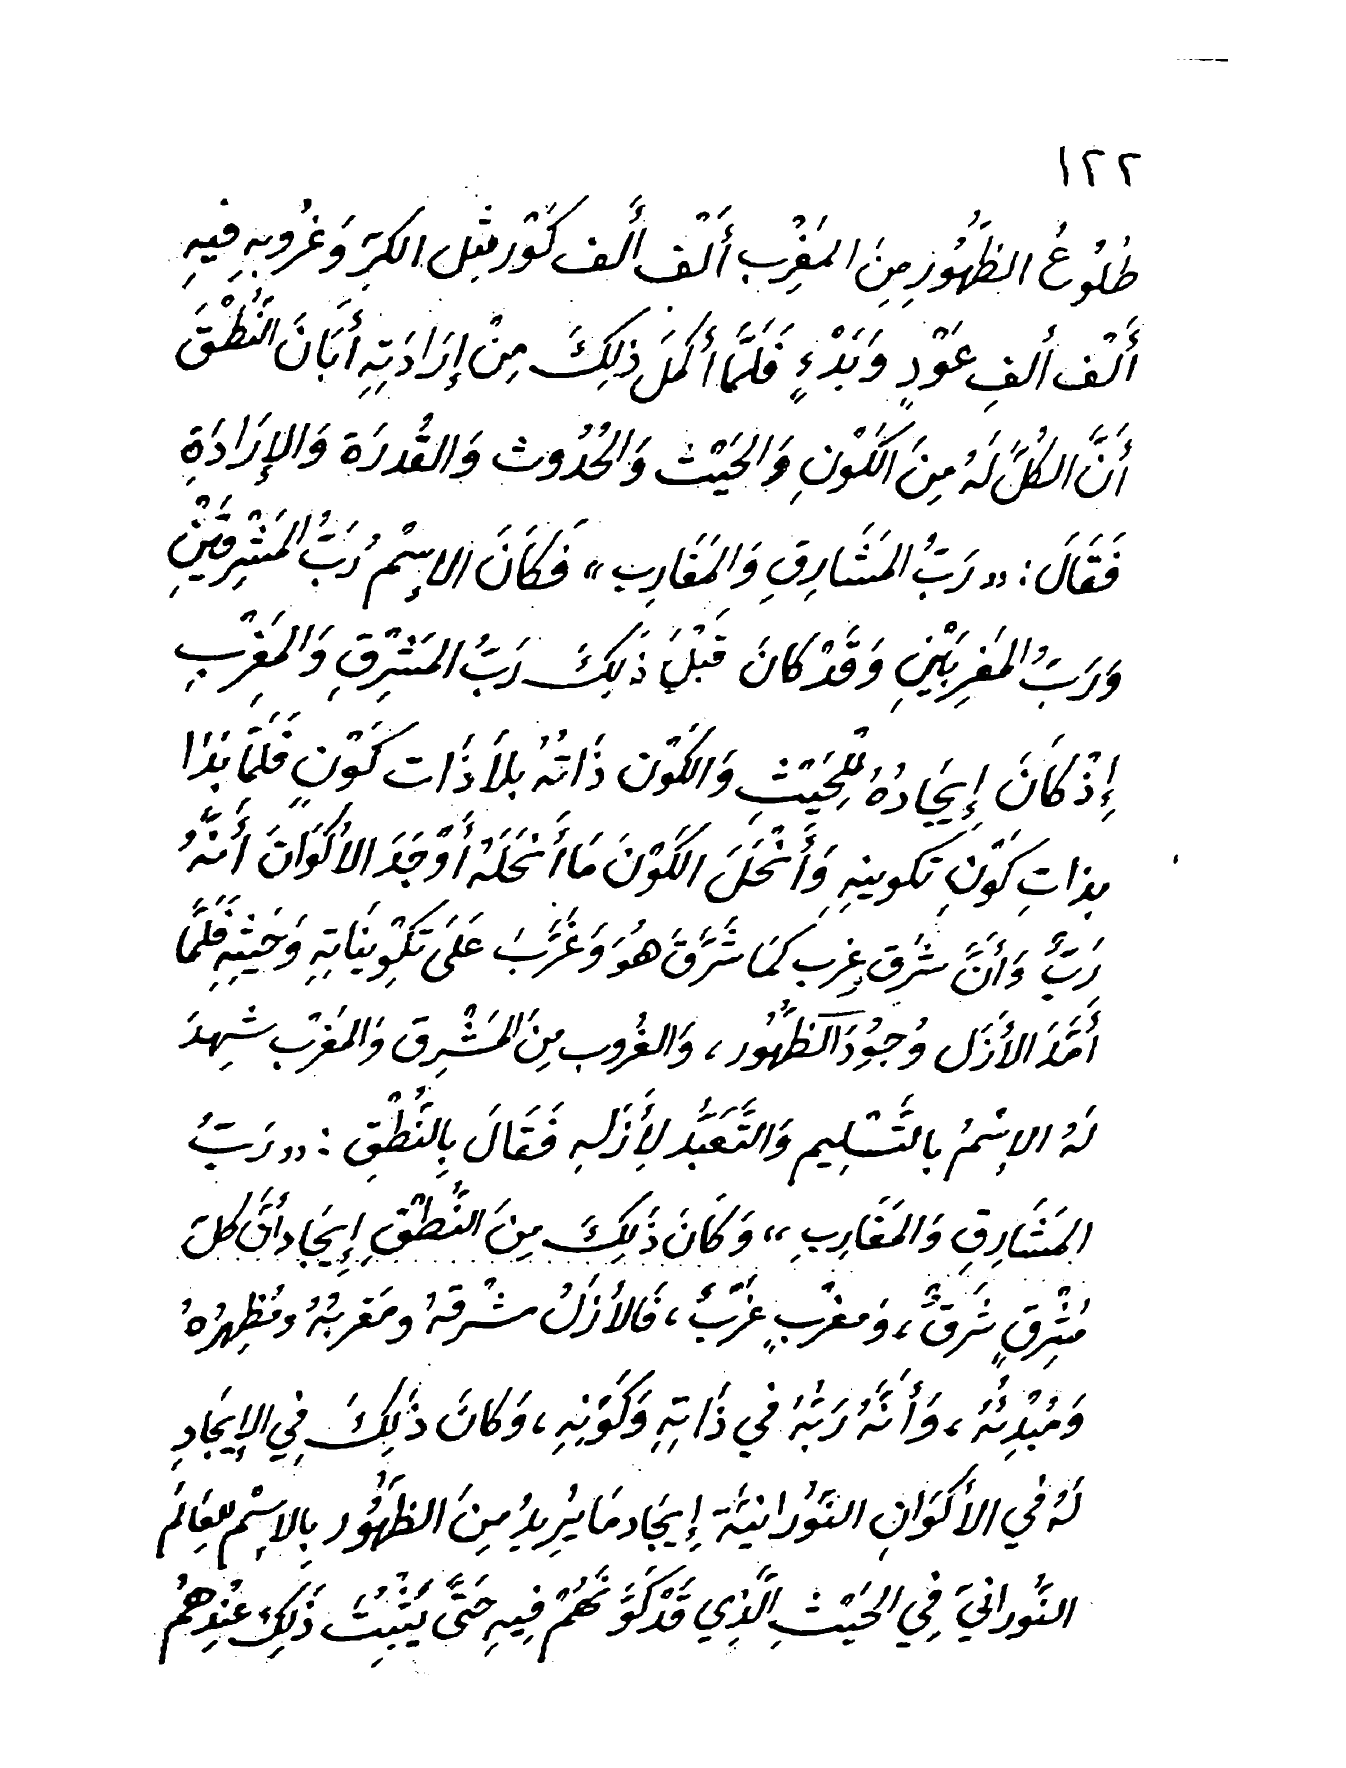 ١٢٢
طُلُوعُ الظُّهُورِ مِنَ المَغْرِبِ أَلْفَ أَلف كَوْر مِثْلِ الكرِّ وَغُرُوبِهِ فِيهِ
أَلْفَ أَلفِ عَوْدٍ وَبَدْءٍ فَلَمَّا أَكْمَلَ ذلِكَ مِنْ إِرَادَتِهِ أَبَانَ النُّطْقَ
أَنَّ الكُلَّ لَهُ مِنَ الكَوْنِ وَالحَيْث وَالحُدُوث وَالقُدرَة وَالإِرَادَةِ
فَقَالَ: «رَبُّ المَشَارِقِ وَالمَغَارِب» فَكَانَ الإِسْم رَبُّ المَشْرِقَيْنِ
وَرَبُّ المَغرِبَيْنِ وَقَدْ كانَ قَبْلَ ذَلِكَ رَبُّ المَشْرِقِ وَالمَغِرْبِ
إِذْ كَانَ إِيجَادُهُ لِلْحَيْثِ وَالكَوْن ذَاتُهُ بِلاَ ذَات كَوْنٍ فَلَمَّا بَدَا
بِذاتِ كَوْنِ تكوينِهِ وَأَنْحَلَ الكَوْنَ مَا أَنحَلَهُ أَوْجَدَ الأكْوَانَ أَنَّهُ
رَبٌّ وَأَنَّ شرَق غرب كمَا شَرَّقَ هُوَ وَغَرَّبَ عَلَى تَكْوِينَاتِهِ وَحَيْثِهِ فَلَمَّا
أَمَدَّ الأَزَل وُجُودَ الظُّهُور، وَالغُروب مِنَ المَشْرِقَ وَالمَغرْب شَهِدَ
لَهُ الإِسْمُ بالتَّسْلِيم وَالتَّعَبُّد لأَزَلِهِ فَقَالَ بِالنُّطْقِ: «رَبُّ
المَشَارِقِ وَالمَغَارِبِ» وَكَانَ ذَلِكَ مِنَ النُّطْقِ إِيجَاد أَنَّ كلَّ
مَشْرِقٍ شَرَقٌ، وَمغرْبٍ غَرْبٌ، فَالأَزَلُ مشْرِقهُ ومَغربُهُ ومُظهِرُهُ
وَمُبْدِئُهُ، وَأَنَّهُ رَبُّهُ في ذَاتِهِ وَكَوْنِهِ، وَكانَ ذَلِكَ فِي الإِيجَادِ
لَهُ في الأَكوَانِ النَّوْرَانيَّة إِيجَاد مَا يُرِيدُ مِنَ الظُهُور بِالإِسْم لِلعَالَم
النُّورانيّ فِي الحَيْثِ الَّذِي قَدْ كَوَّنَهُمْ فِيهِ حَتَّى يُثْبِتَ ذَلِكَ عِنْدهُمْ